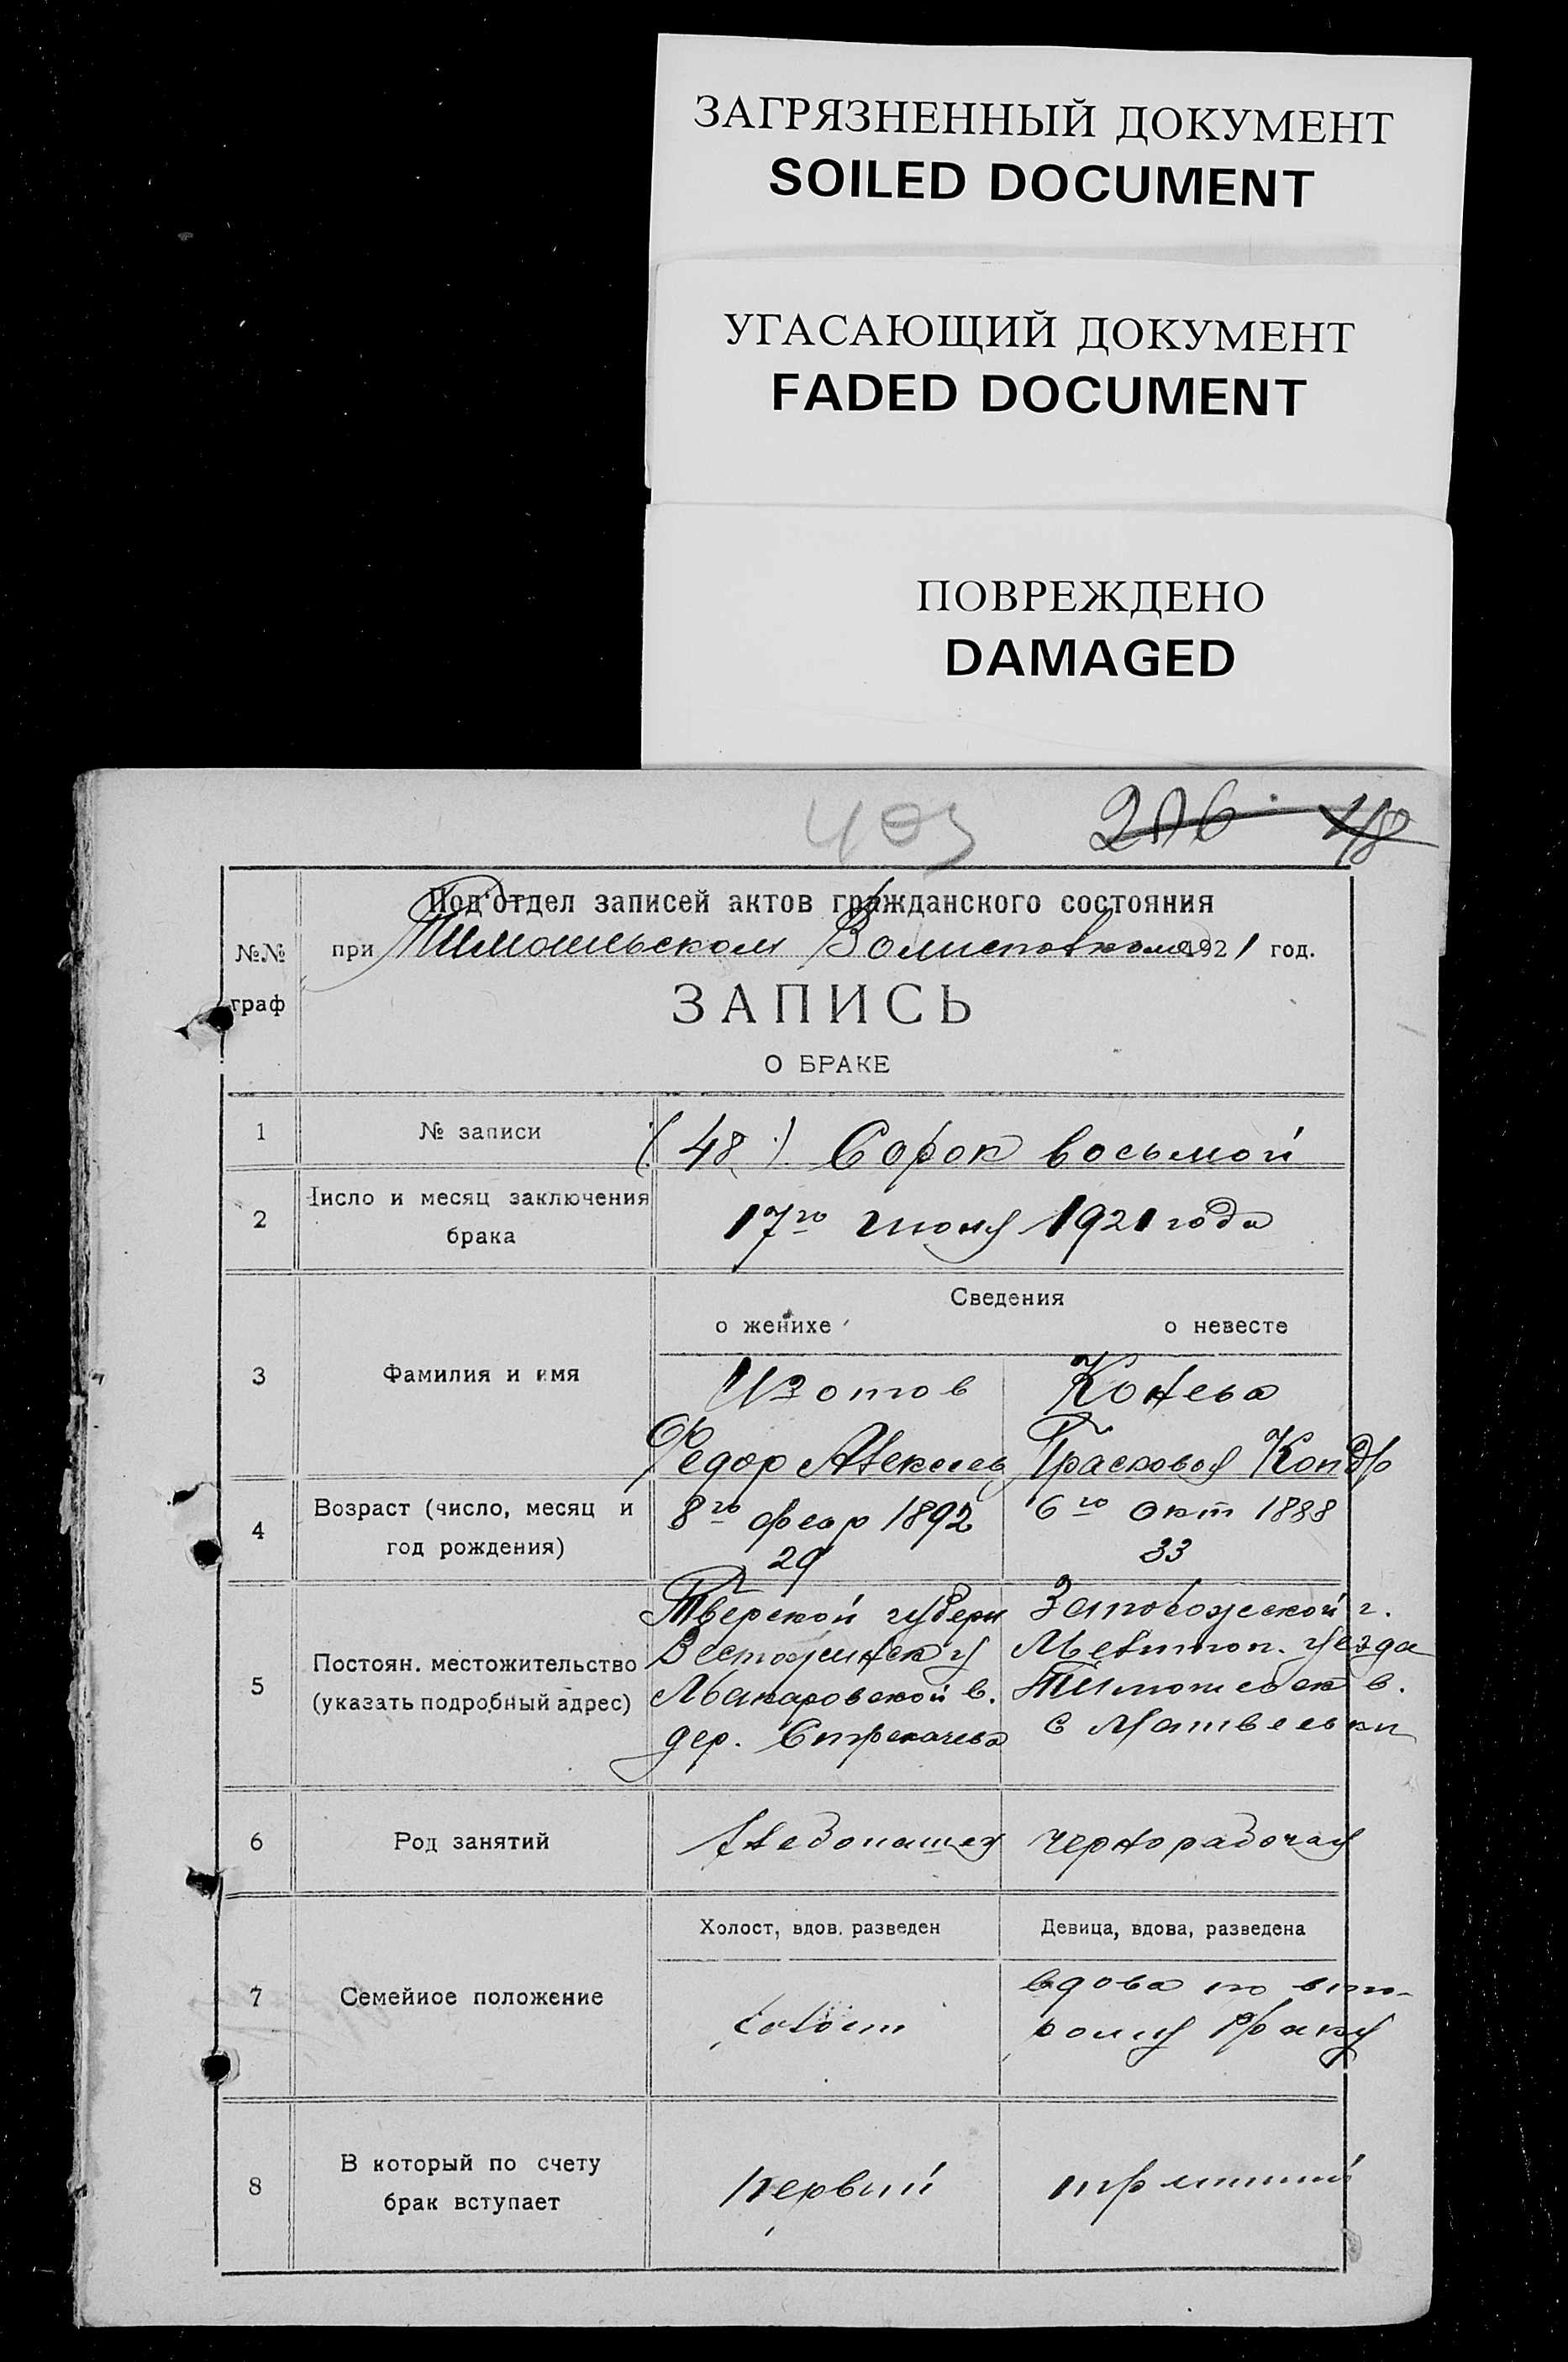 ЗАГРЯЗНЕННЫЙ ДОКУМЕНТ
SOILED DOCUMENT
УГАСАЮЩИЙ ДОКУМЕНТ
FADED DOCUMENT
ПОВРЕЖДЕНО
DAMAGED
403
206
№№ граф
Под'отдел записей актов гражданского состояния
при Волисполкоме 1921 год.
ЗАПИСЬ
О БРАКЕ
1 № записи (48) Сорок восьмой
2 Число и месяц заключения брака 17го июня 1921 года
Сведения
о женихе о невесте
3 Фамилия и имя
Изотов Конева
Федор Алексеев Прасковья Кондр
4 Возраст (число, месяц и год рождения)
8го февр 1892 6го окт 1888
29 33
5 Постоян. местожительство (указать подробный адрес)
Тверской губерн Запорожской г.
Мелитоп. уезда
Макаровской в. Тимошевск в.
дер. Стрекачево с Матвеевки
6 Род занятий
Хлебопашец чернорабочая
Холост, вдов. разведен Девица, вдова, разведена
7 Семейное положение
холост
вдова по вто-
рому браку
8 В который по счету брак вступает
первый третий